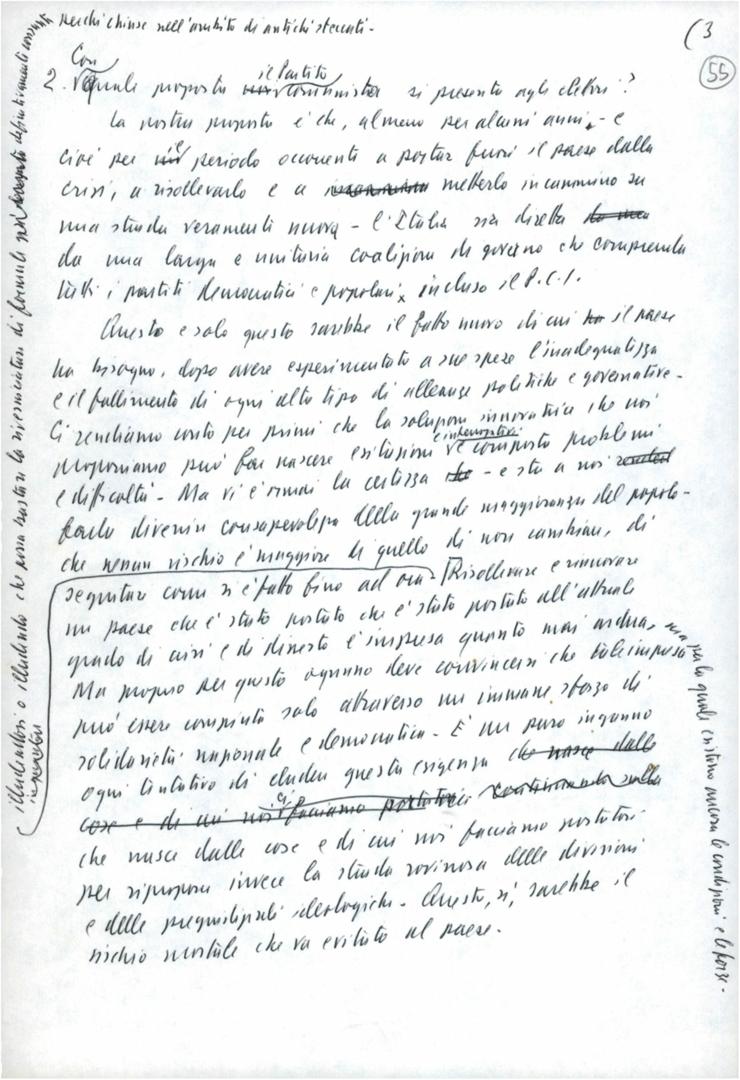 vecchi chiusi nell'ambito di antichi steccati-
(3
55
Con
il Partito
2. Quale proposta comunista si presenta agli elettori?
La nostra proposta è che, almeno per alcuni anni, - e
cioè per il periodo occorrente a portar fuori il paese dalla
crisi, a risollevarlo e a metterlo in cammino su
una strada veramente nuova - l'Italia sia diretta
da una larga e unitaria coalizione di governo che comprenda
tutti i partiti democratici e popolari, incluso il P.C.I.
Questo e solo questo sarebbe il fatto nuovo di cui il paese
ha bisogno, dopo avere esperimentato a sue spese l'inadeguatezza
e il fallimento di ogni altro tipo di alleanze politiche e governative-
Ci rendiamo conto per primi che la soluzione innovatrice che noi
e interrogativi
proponiamo può fare nascere esitazioni e comporta problemi
e difficoltà- Ma vi è ormai la certezza - e sta a noi
farla divenire consapevolezza della grande maggioranza del popolo-
che nessun rischio è maggiore di quello di non cambiare, di
seguitare come si è fatto fino ad ora- Risollevare e rinnovare
un paese che è stato portato che è stato portato all'attuale
grado di crisi e di dissesto è impresa quanto mai ardua,
ma per la quale esistono ancora le condizioni e le forze-
Ma proprio per questo ognuno deve convincersi che tale impresa
può essere compiuta solo attraverso un immane sforzo di
solidarietà nazionale e democratica- È un puro inganno
ogni tentativo di eludere questa esigenza che nasce dalle
cose e di cui noi ci facciamo portatori
che nasce dalle cose e di cui noi facciamo portatori
per riproporre invece la strada rovinosa delle divisioni
e delle pregiudiziali ideologiche- Questo, sì, sarebbe il
rischio mortale che va evitato al paese.
illudendosi o illudendo che possa bastare la riverniciatura di formule